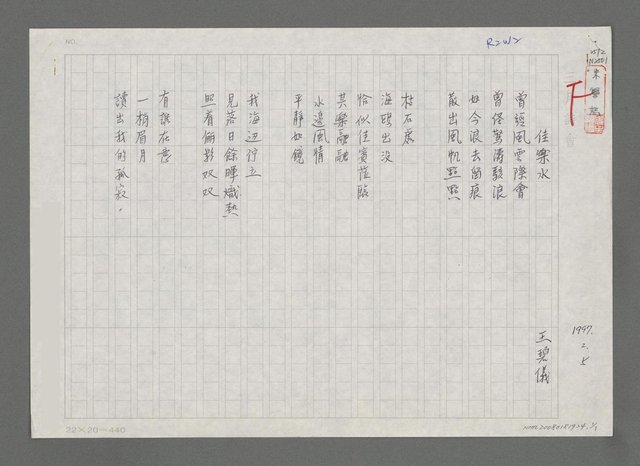 NO.
R2W2
佳樂水
曾經風雲際會
曾怪驚濤駭浪
如今浪去留痕
散出風帆點點
枯石處
海鷗出沒
恰似佳賓蒞臨
其樂融融
水邊風情
平靜如鏡
我海邊佇立
見落日餘暉熾熱
照著儷影双双
有誰在意
一梢眉月
讀出我的孤寂。
王碧儀
1997.
2. 5
22×20=440